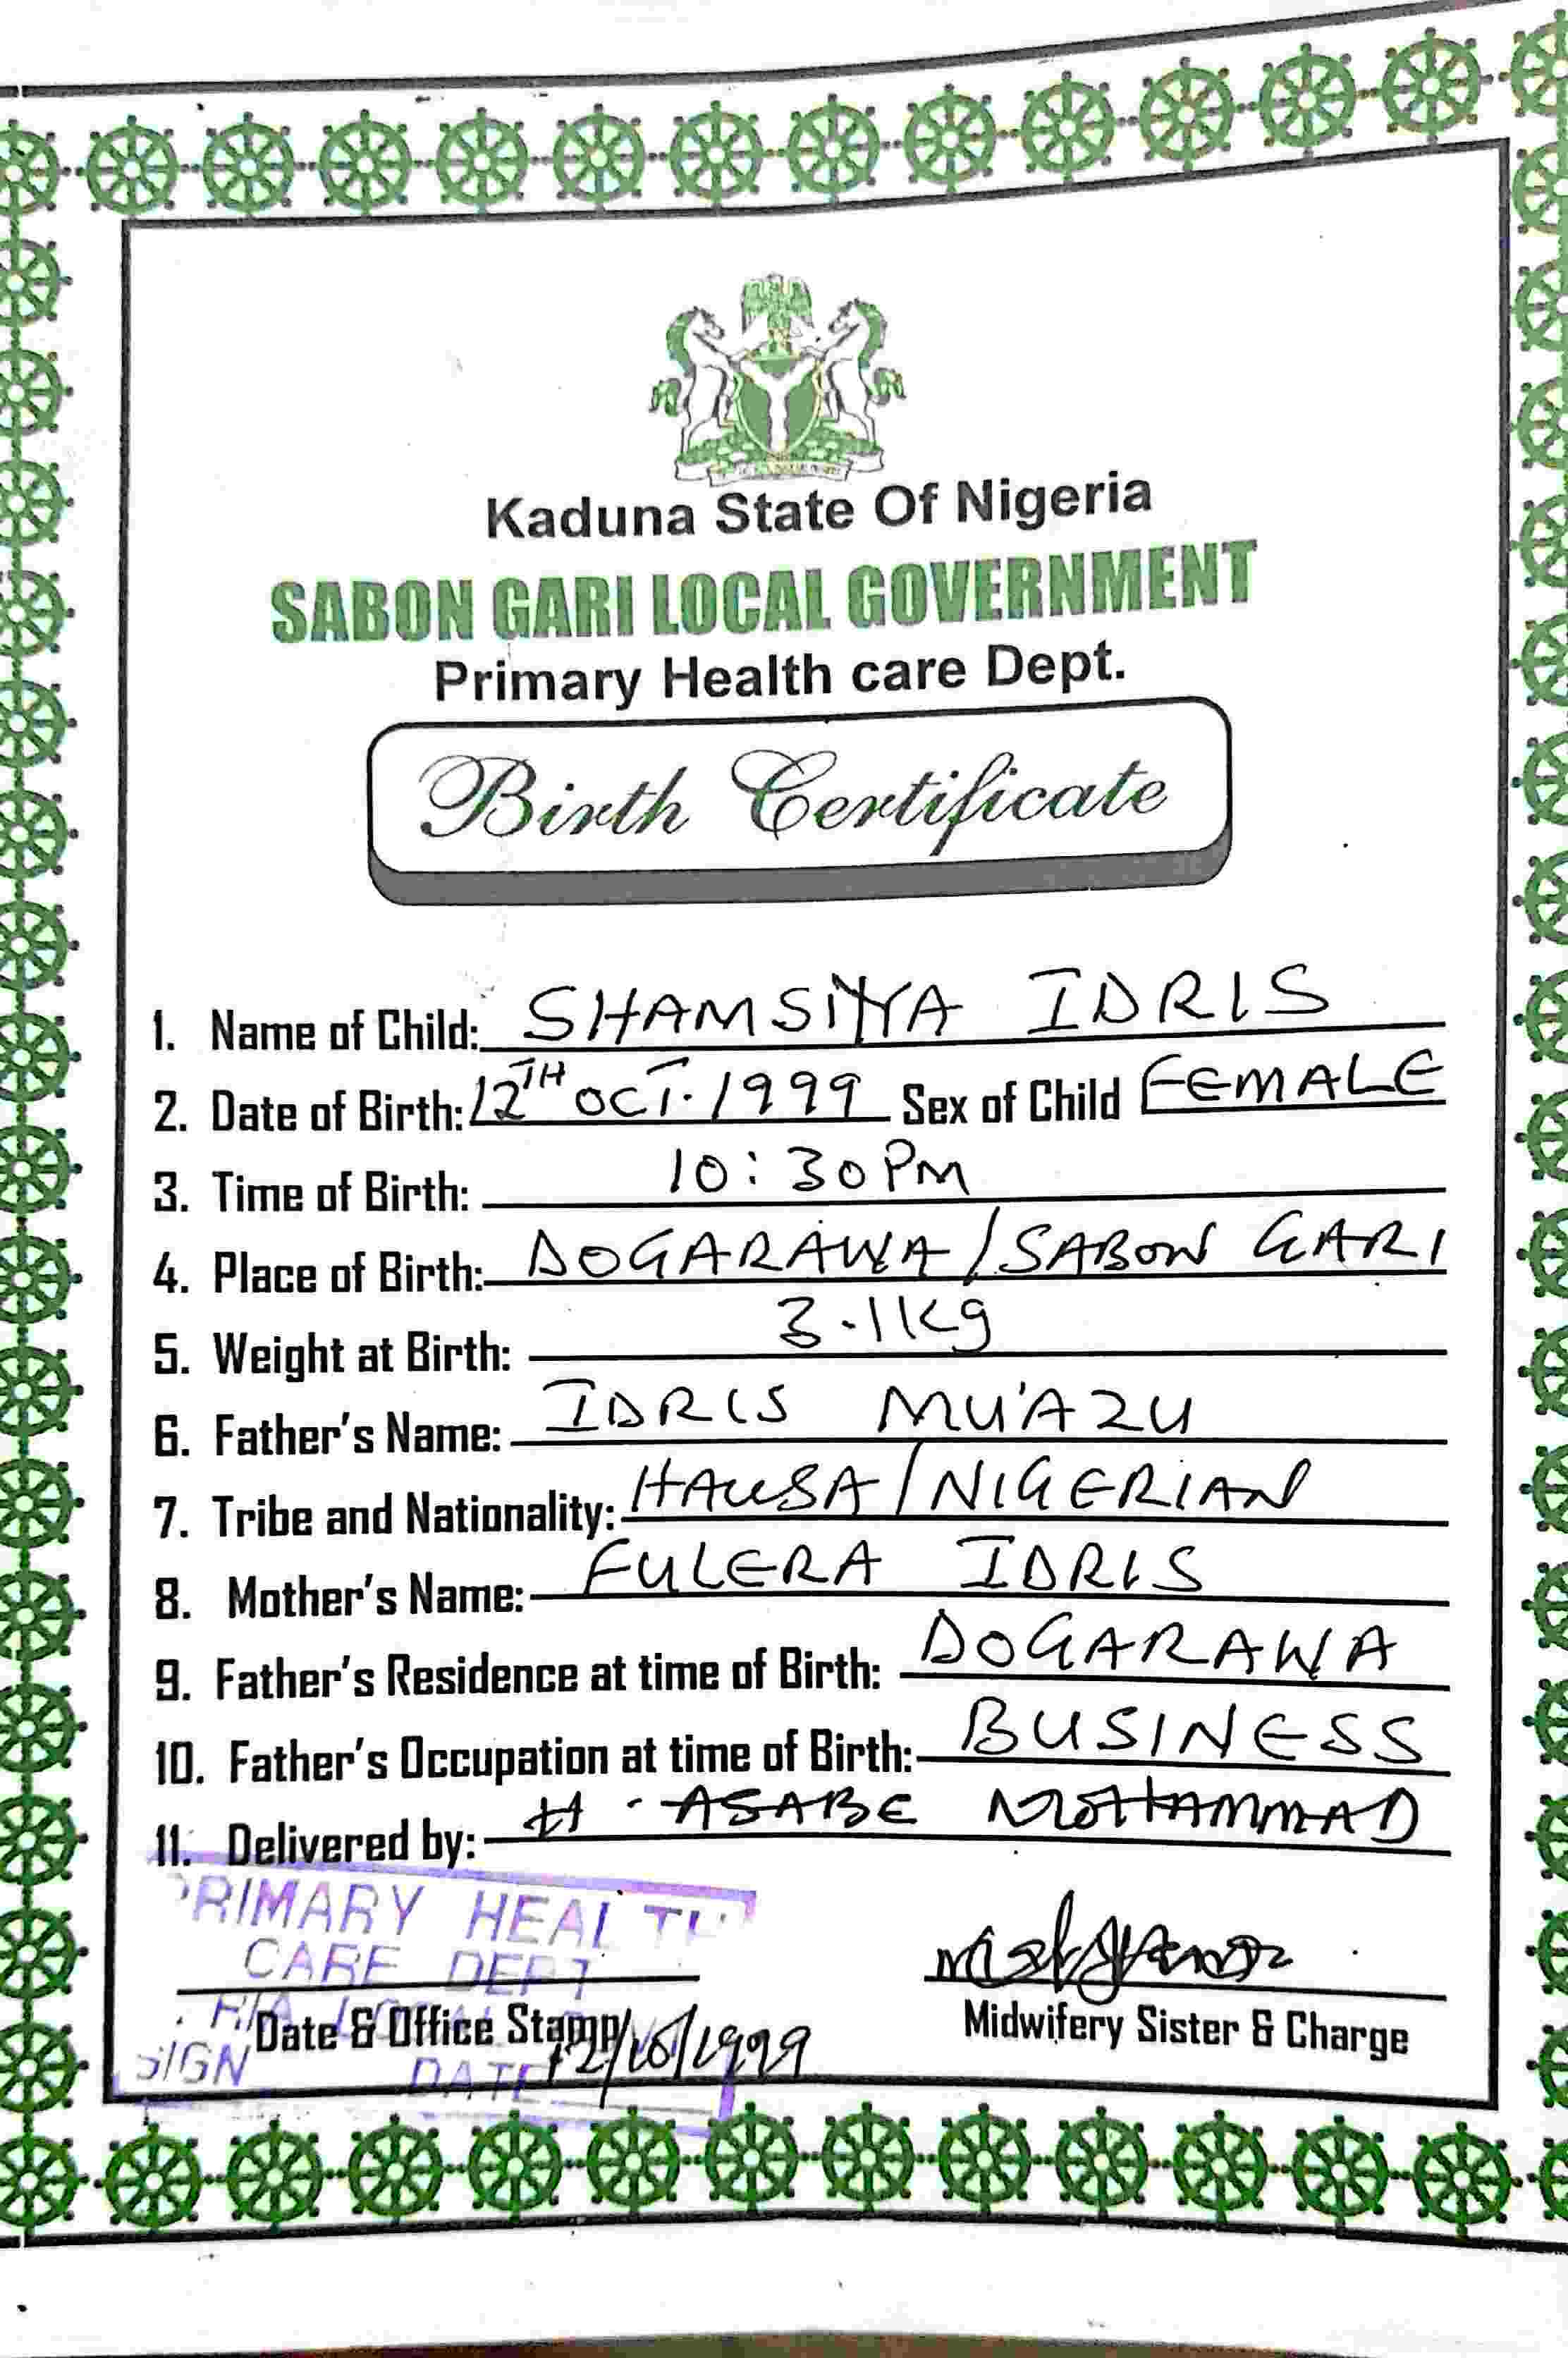 Kaduna State Of Nigeria
SABON GARI LOCAL GOVERNMENT
Primary Health care Dept.
Birth Certificate
1. Name of Child: SHAMSIYYA IDRIS
2. Date of Birth: 12TH OCT. 1999 Sex of Child FEMALE
3. Time of Birth: 10:30PM
4. Place of Birth: DOGARAWA/SABON GARI
5. Weight at Birth: 3.1Kg
6. Father's Name: IDRIS MU'AZU
7. Tribe and Nationality: HAUSA/NIGERIAN
8. Mother's Name: FULERA IDRIS
9. Father's Residence at time of Birth: DOGARAWA
10. Father's Occupation at time of Birth: BUSINESS
11. Delivered by: H. ASABE MOHAMMAD
PRIMARY HEALTH
CARE DEPT
Date & Office Stamp 12/10/1999
Midwifery Sister & Charge
SIGN DATE